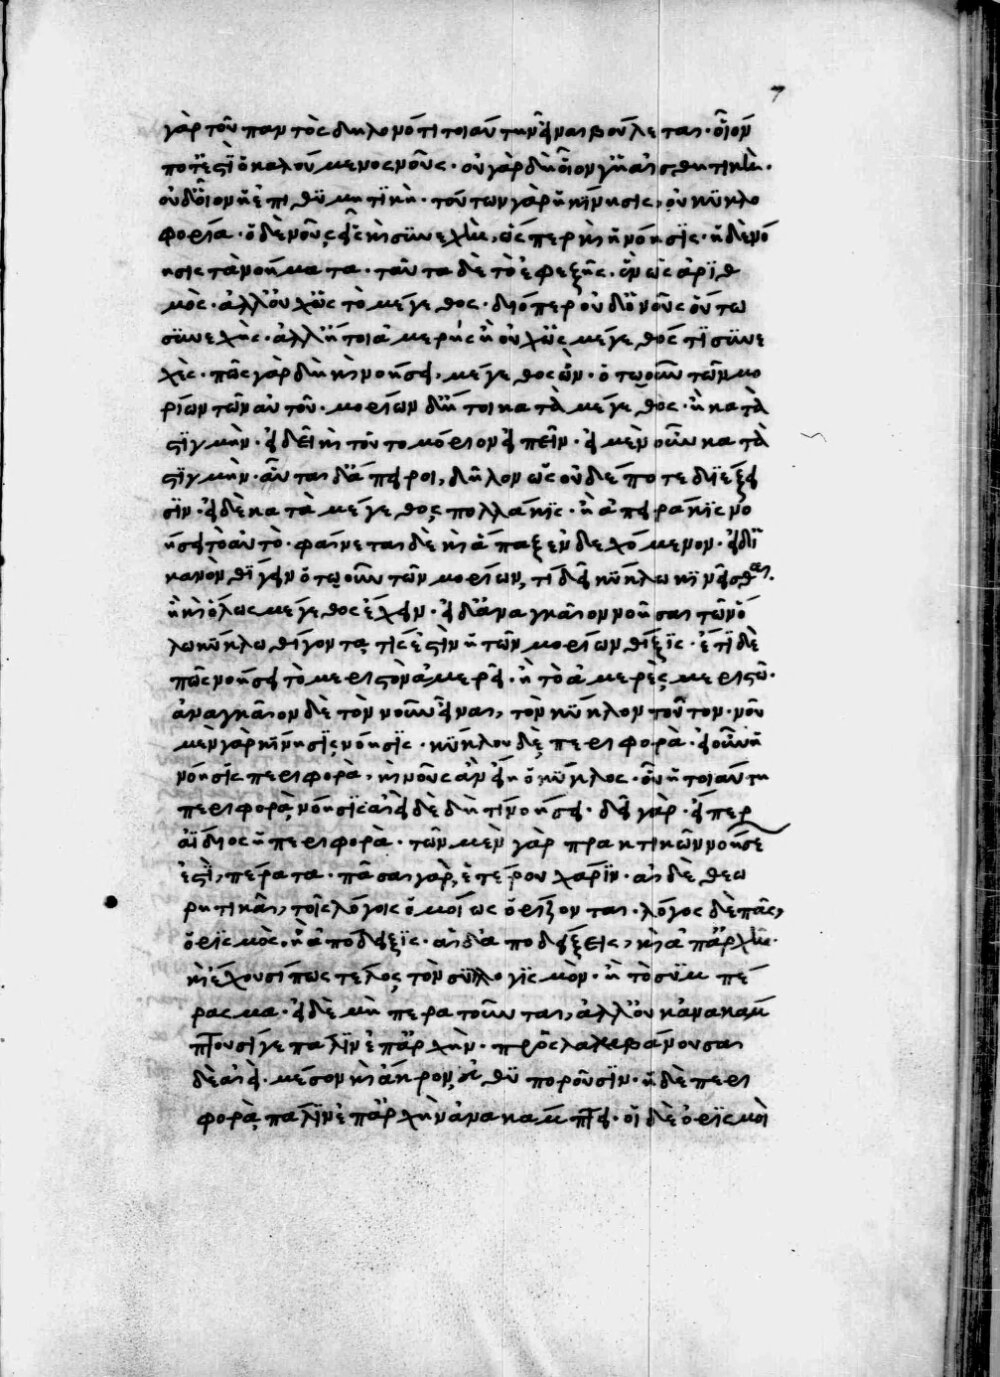 7
γὰρ τοῦ παντὸς δηλονότι τοιαύτην εἶναι βούλεται· οἷον
ποτ' ἐστὶ ὁ καλούμενος νοῦς· οὐ γὰρ δὴ οἷον γ' ἡ αἰσθητικὴ·
οὐδ' οἷον ἡ ἐπιθυμητικὴ· τούτων γὰρ ἡ κίνησις, οὐ κύκλο
φορία· ὁ δὲ νοῦς εἷς καὶ συνεχὴς, ὥσπερ καὶ ἡ νόησις· ἡ δὲ νό
ησις τὰ νοήματα· ταῦτα δὲ τὸ ἐφεξῆς· ἓν ὡς ἀριθ
μὸς· ἀλλ' οὐχ ὡς τὸ μέγεθος· διόπερ οὐδ' ὁ νοῦς οὕτω
συνεχὴς· ἀλλ' ἤτοι ἀμερὴς ἢ οὐχ ὡς μέγεθός τι συνε
χὲς· πῶς γὰρ δὴ καὶ νοήσει, μέγεθος ὢν· ὁτῳοῦν τῶν μο
ρίων τῶν αὐτοῦ· μορίων δ' ἤτοι κατὰ μέγεθος· ἢ κατὰ
στιγμὴν· εἰ δεῖ καὶ τοῦτο μόριον εἰπεῖν· εἰ μὲν οὖν κατὰ
στιγμὴν· αὗται δ' ἄπειροι, δῆλον ὡς οὐδέποτε διέξει
σιν· εἰ δὲ κατὰ μέγεθος πολλάκις· ἢ ἀπειράκις νο
ήσει τὸ αὐτὸ· φαίνεται δὲ καὶ ἅπαξ ἐνδεχόμενον· εἰ δ' ἱ
κανὸν θίγειν ὁτῳοῦν τῶν μορίων, τί δεῖ κύκλω κινεῖσθαι·
ἢ καὶ ὅλως μέγεθος ἔχειν· εἰ δ' ἀναγκαῖον νοῆσαι τῶ ὅ
λω κύκλω θίγοντα, τίς ἐστὶν ἡ τῶν μορίων θίξις· ἔτι δὲ
πῶς νοήσει τὸ μεριστὸν ἀμερεῖ· ἢ τὸ ἀμερὲς μεριστῶ·
ἀναγκαῖον δὲ τὸν νοῦν εἶναι, τὸν κύκλον τοῦτον· νοῦ
μὲν γὰρ κίνησις, νόησις· κύκλου δὲ, περιφορὰ· εἰ οὖν ἡ
νόησις περιφορὰ, καὶ νοῦς ἂν εἴη ὁ κύκλος· οὗ ἡ τοιαύτη
περιφορὰ νόησις· ἀεὶ δὲ δὴ τί νοήσει· δεῖ γὰρ· εἴπερ
ἀΐδιος ἡ περιφορὰ· τῶν μὲν γὰρ πρακτικῶν νοήσε
ἐστὶ, πέρατα· πᾶσαι γὰρ, ἑτέρου χάριν· αἱ δὲ θεω
ρητικαὶ, τοῖς λόγοις ὁμοίως ὁρίζονται· λόγος δὲ πᾶς,
ὁρισμὸς· ἢ ἀπόδειξις· αἱ δ' ἀποδείξεις, καὶ ἀπ' ἀρχῆς·
καὶ ἔχουσί πως τέλος τὸν συλλογισμὸν· ἢ τὸ συμπέ
ρασμα· εἰ δὲ μὴ περατοῦνται, ἀλλ' οὐκ ἀνακάμ
πτουσί γε πάλιν ἐπ' ἀρχὴν· προσλαμβάνουσαι
δὲ ἀεὶ· μέσον καὶ ἄκρον, εὐθυποροῦσιν· ἡ δὲ περι
φορὰ πάλιν ἐπ' ἀρχὴν ἀνακάμπτει· οἱ δὲ ὁρισμοὶ